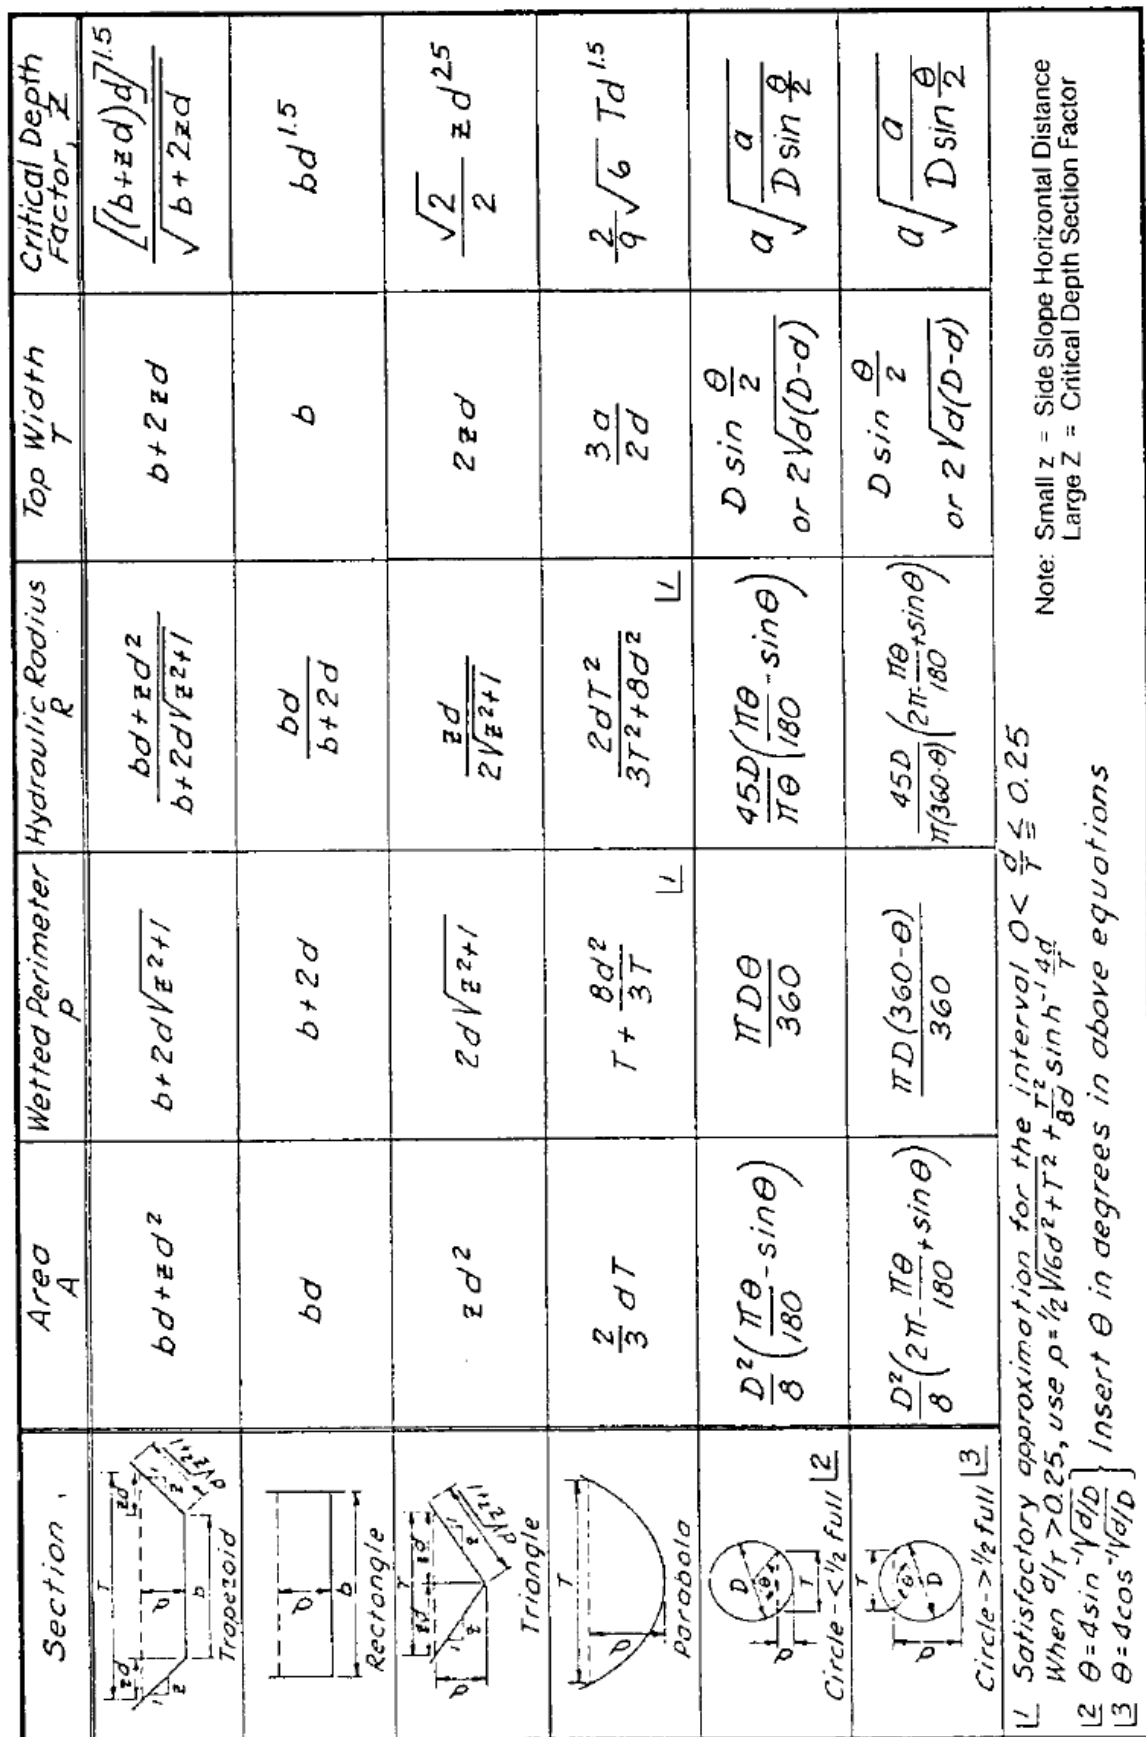 Section
Area
A
Wetted Perimeter
P
Hydraulic Radius
R
Top Width
T
Critical Depth
Factor, Z
Trapezoid
bd+zd²
b+2d√(z²+1)
(bd+zd²)/(b+2d√(z²+1))
b+2zd
[(b+zd)d]^1.5/√(b+2zd)
Rectangle
bd
b+2d
bd/(b+2d)
b
bd^1.5
Triangle
zd²
2d√(z²+1)
zd/(2√(z²+1))
2zd
(√2/2) zd^2.5
Parabola
2/3 dT
T + 8d²/3T ⌊1
2dT²/(3T²+8d²) ⌊1
3a/2d
2/9 √6 Td^1.5
Circle-<1/2 full ⌊2
D²/8 (πθ/180 - sinθ)
πDθ/360
45D/πθ (πθ/180 - sinθ)
D sin θ/2
or 2√(d(D-d))
a√(a/(D sin θ/2))
Circle->1/2 full ⌊3
D²/8 (2π - πθ/180 + sinθ)
πD(360-θ)/360
45D/π(360-θ) (2π - πθ/180 + sinθ)
D sin θ/2
or 2√(d(D-d))
a√(a/(D sin θ/2))
⌊1 Satisfactory approximation for the interval 0 < d/T ≦ 0.25
When d/T >0.25, use p=1/2√(16d²+T²) + T²/8d sinh⁻¹ 4d/T
⌊2 θ=4sin⁻¹√(d/D)
⌊3 θ=4cos⁻¹√(d/D) } Insert θ in degrees in above equations
Note: Small z = Side Slope Horizontal Distance
Large Z = Critical Depth Section Factor